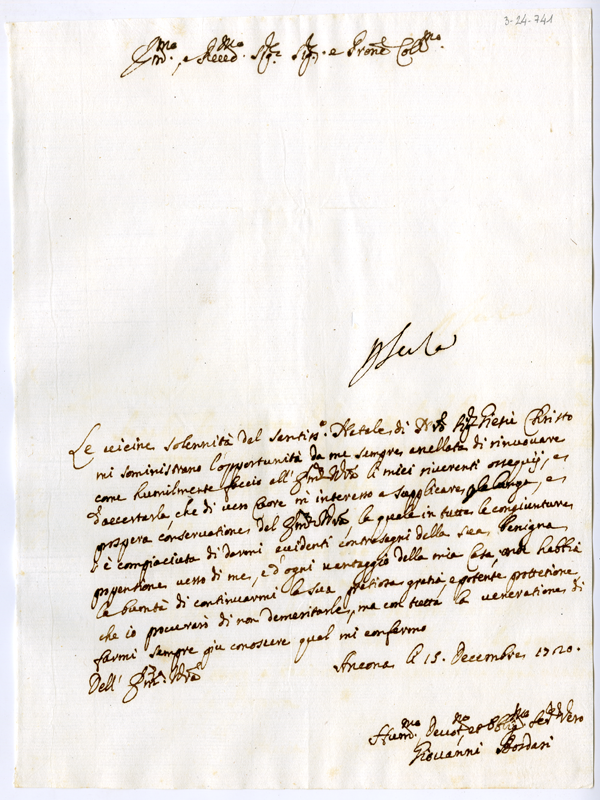 3-24-741
Em.mo e Reved.mo Sig.r Sig.r e Pron.e Coll.mo
Le vicine solennità del Santiss.o Natale di N.ro Sig.r Giesù Christo
mi somministrano l'opportunità da me sempre anellata di rinuovare
come humilmente faccio all' Em.za V.ra li miei riverenti ossequij, e
d'accertarla, che di vero cuore m'interesso a supplicare la lunga, e
prospera conservatione del Em.za V.ra, la quale in tutte le congiunture
s'è compiaciuta di darmi evidenti contrasegni della sua benigna
propentione verso di me, e d'ogni vantaggio della mia Casa, onde habbia
la buontà di continuarmi la sua pretiosa gratia, e potente protettione
che io procurarò di non demeritarle, ma con tutta la veneratione di
farmi sempre più conoscere qual mi confermo
Dell' Em.za V.ra
Ancona li 15. Decembre 1720.
Hum.mo Devot.mo et Obblig.mo Ser.re Vero
Giovanni Bordari